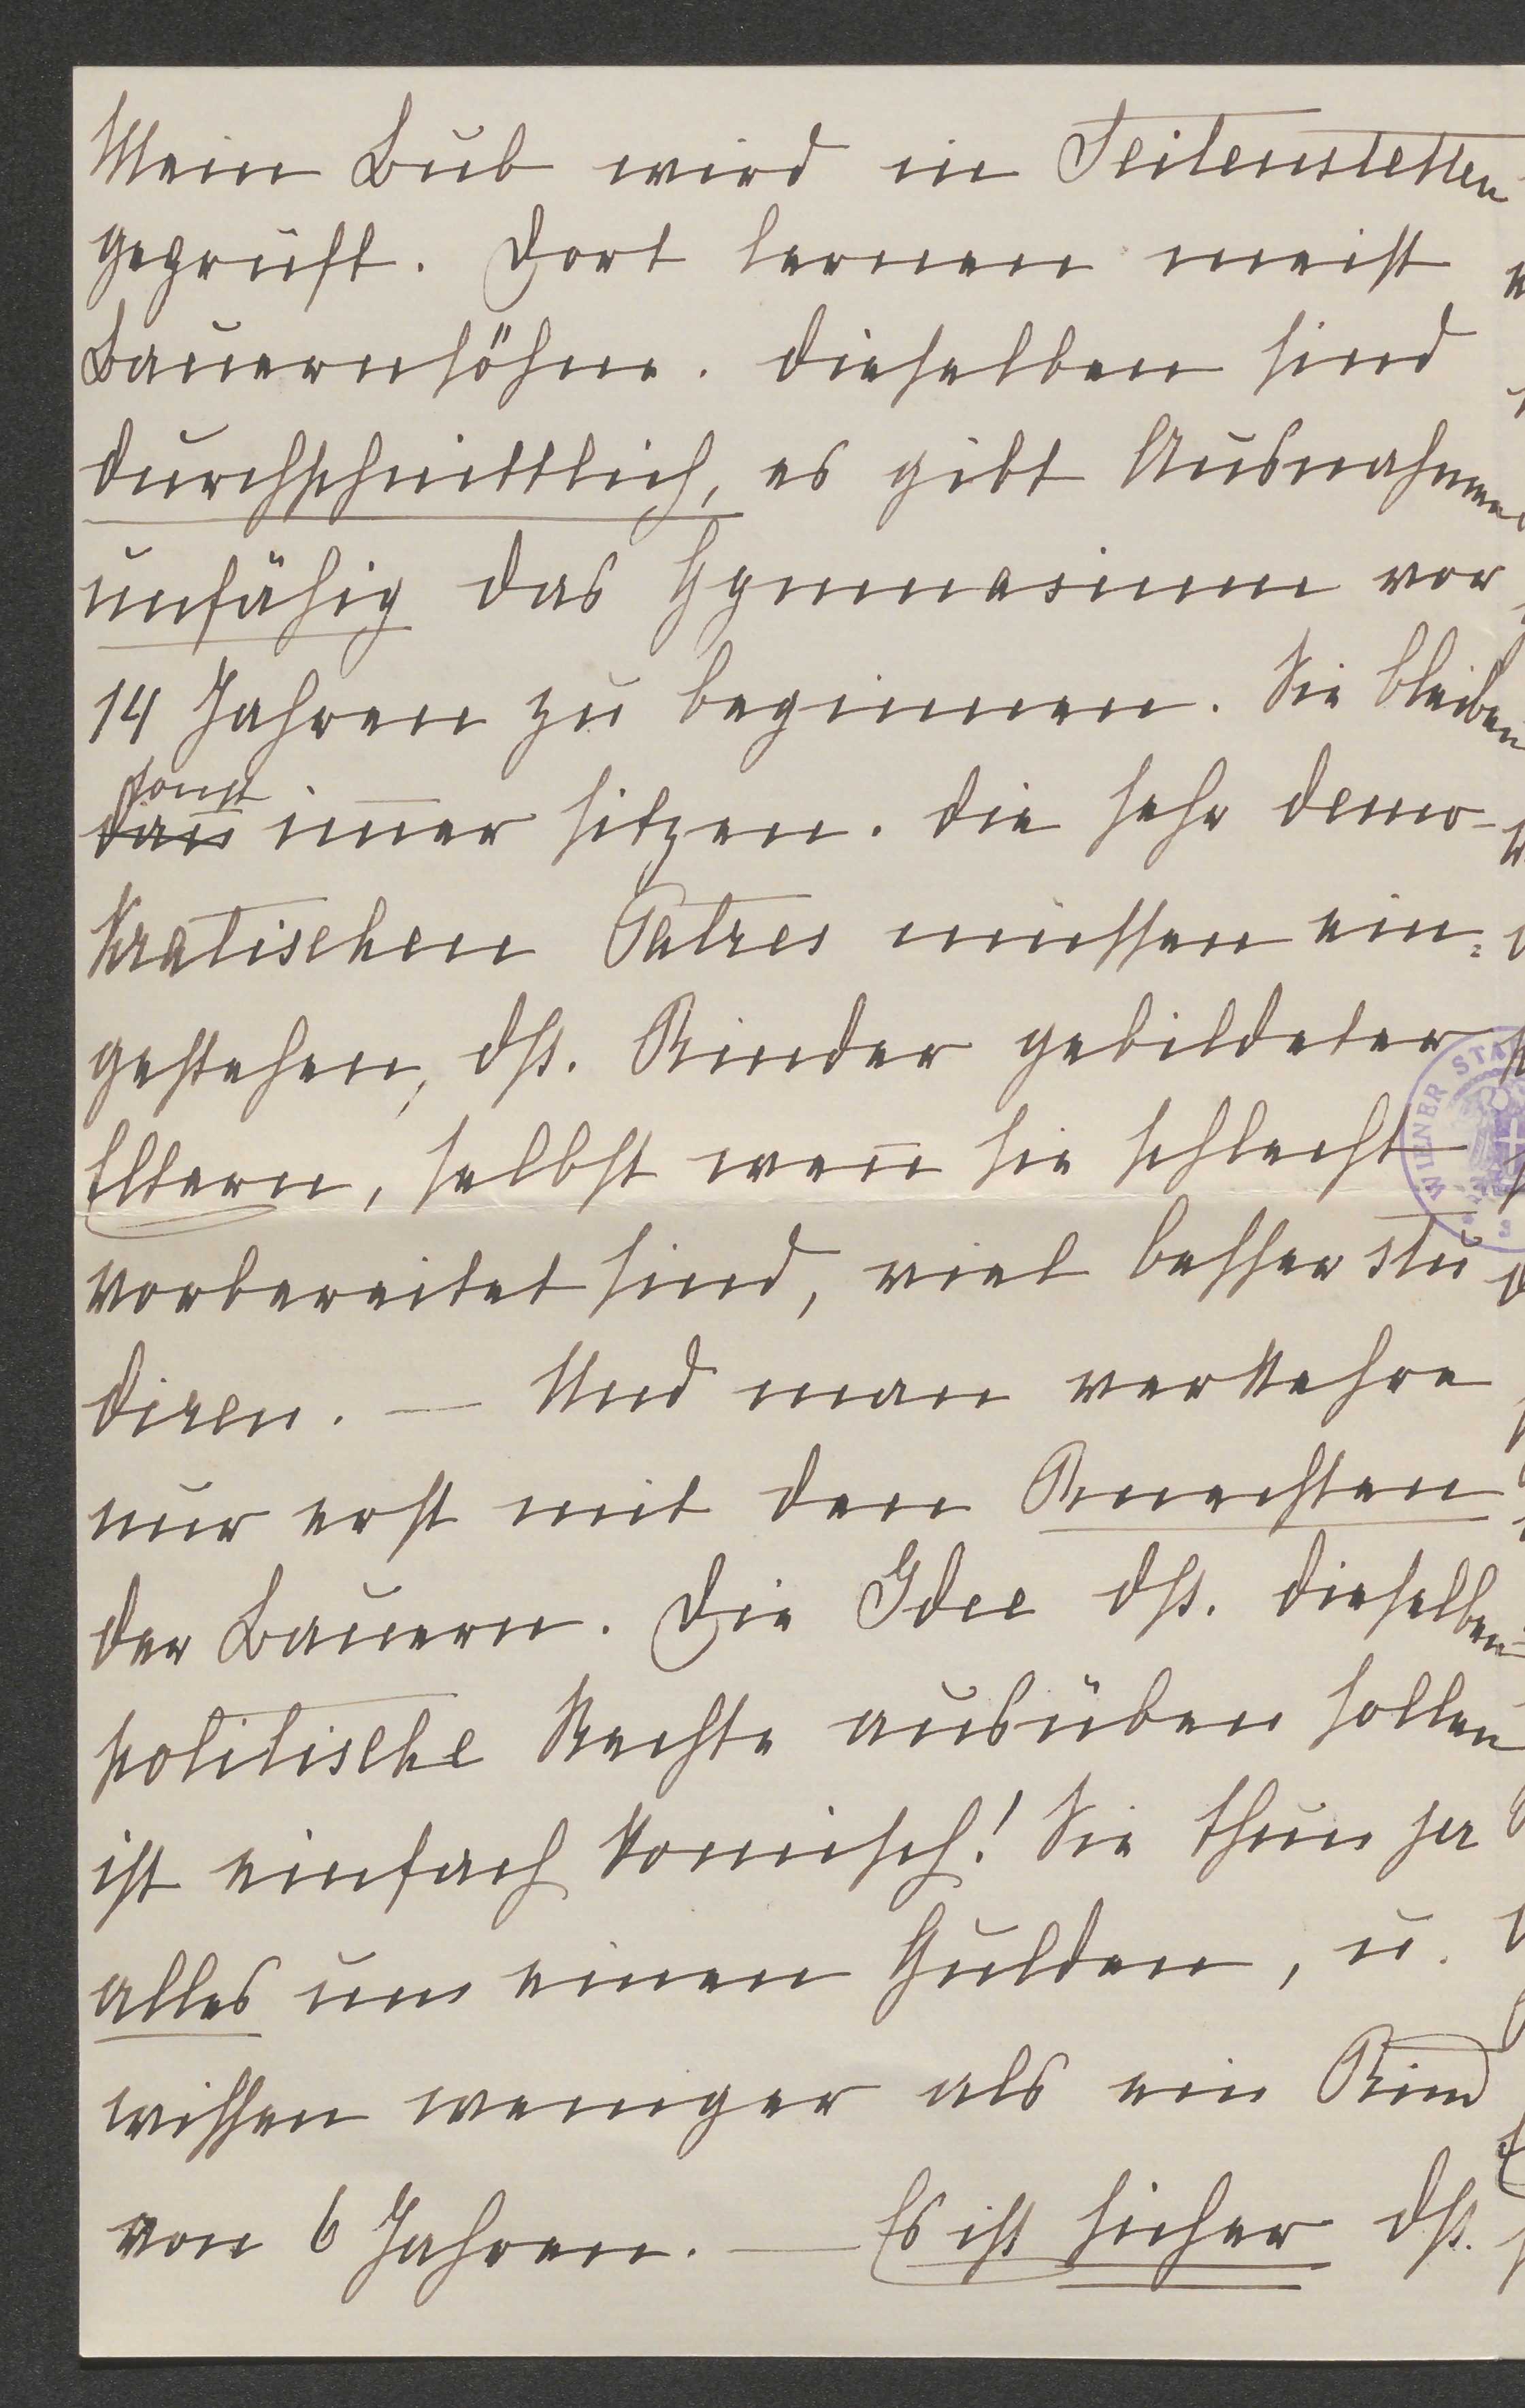 Mein Bub wird in Seitenstetten
geprüft. Dort lernen meist
Bauernsöhne. Dieselben sind
durchschnittlich, es gibt Ausnahmen
unfähig das Gymnasium vor
14 Jahren zu beginnen. Sie bleiben
sonst
dan̄ im̄er sitzen. Die sehr demo-
kratischen Patres müssen ein=
gestehen, dß. Kinder gebildeter
Eltern, selbst wen̄ sie schlecht
vorbereitet sind, viel besser stu
diren. — Und man verkehre
nur erst mit den Knechten
der Bauern. Die Idee dß. dieselben
politische Rechte ausüben sollen
ist einfach komisch! Sie thun ja
alles um einen Gulden, u.
wissen weniger als ein Kind
von 6 Jahren. — Es ist sicher dß.
WIENER STA